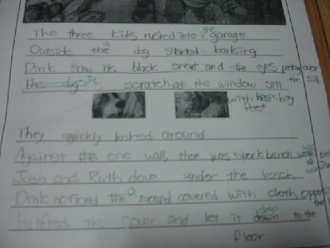 The three kids rushed into the garage
Outside the a dog started barking
Dink saw its black snout and the eyes over the sill
The dog It scratch at the window sill
with its big feet
They quickly looked around
Against the one wall, there was a work bench with
Josh and Ruth dove under the bench
Dink noticed the a mound covered with cloth
He lifted the cover and let it drop down to the
floor